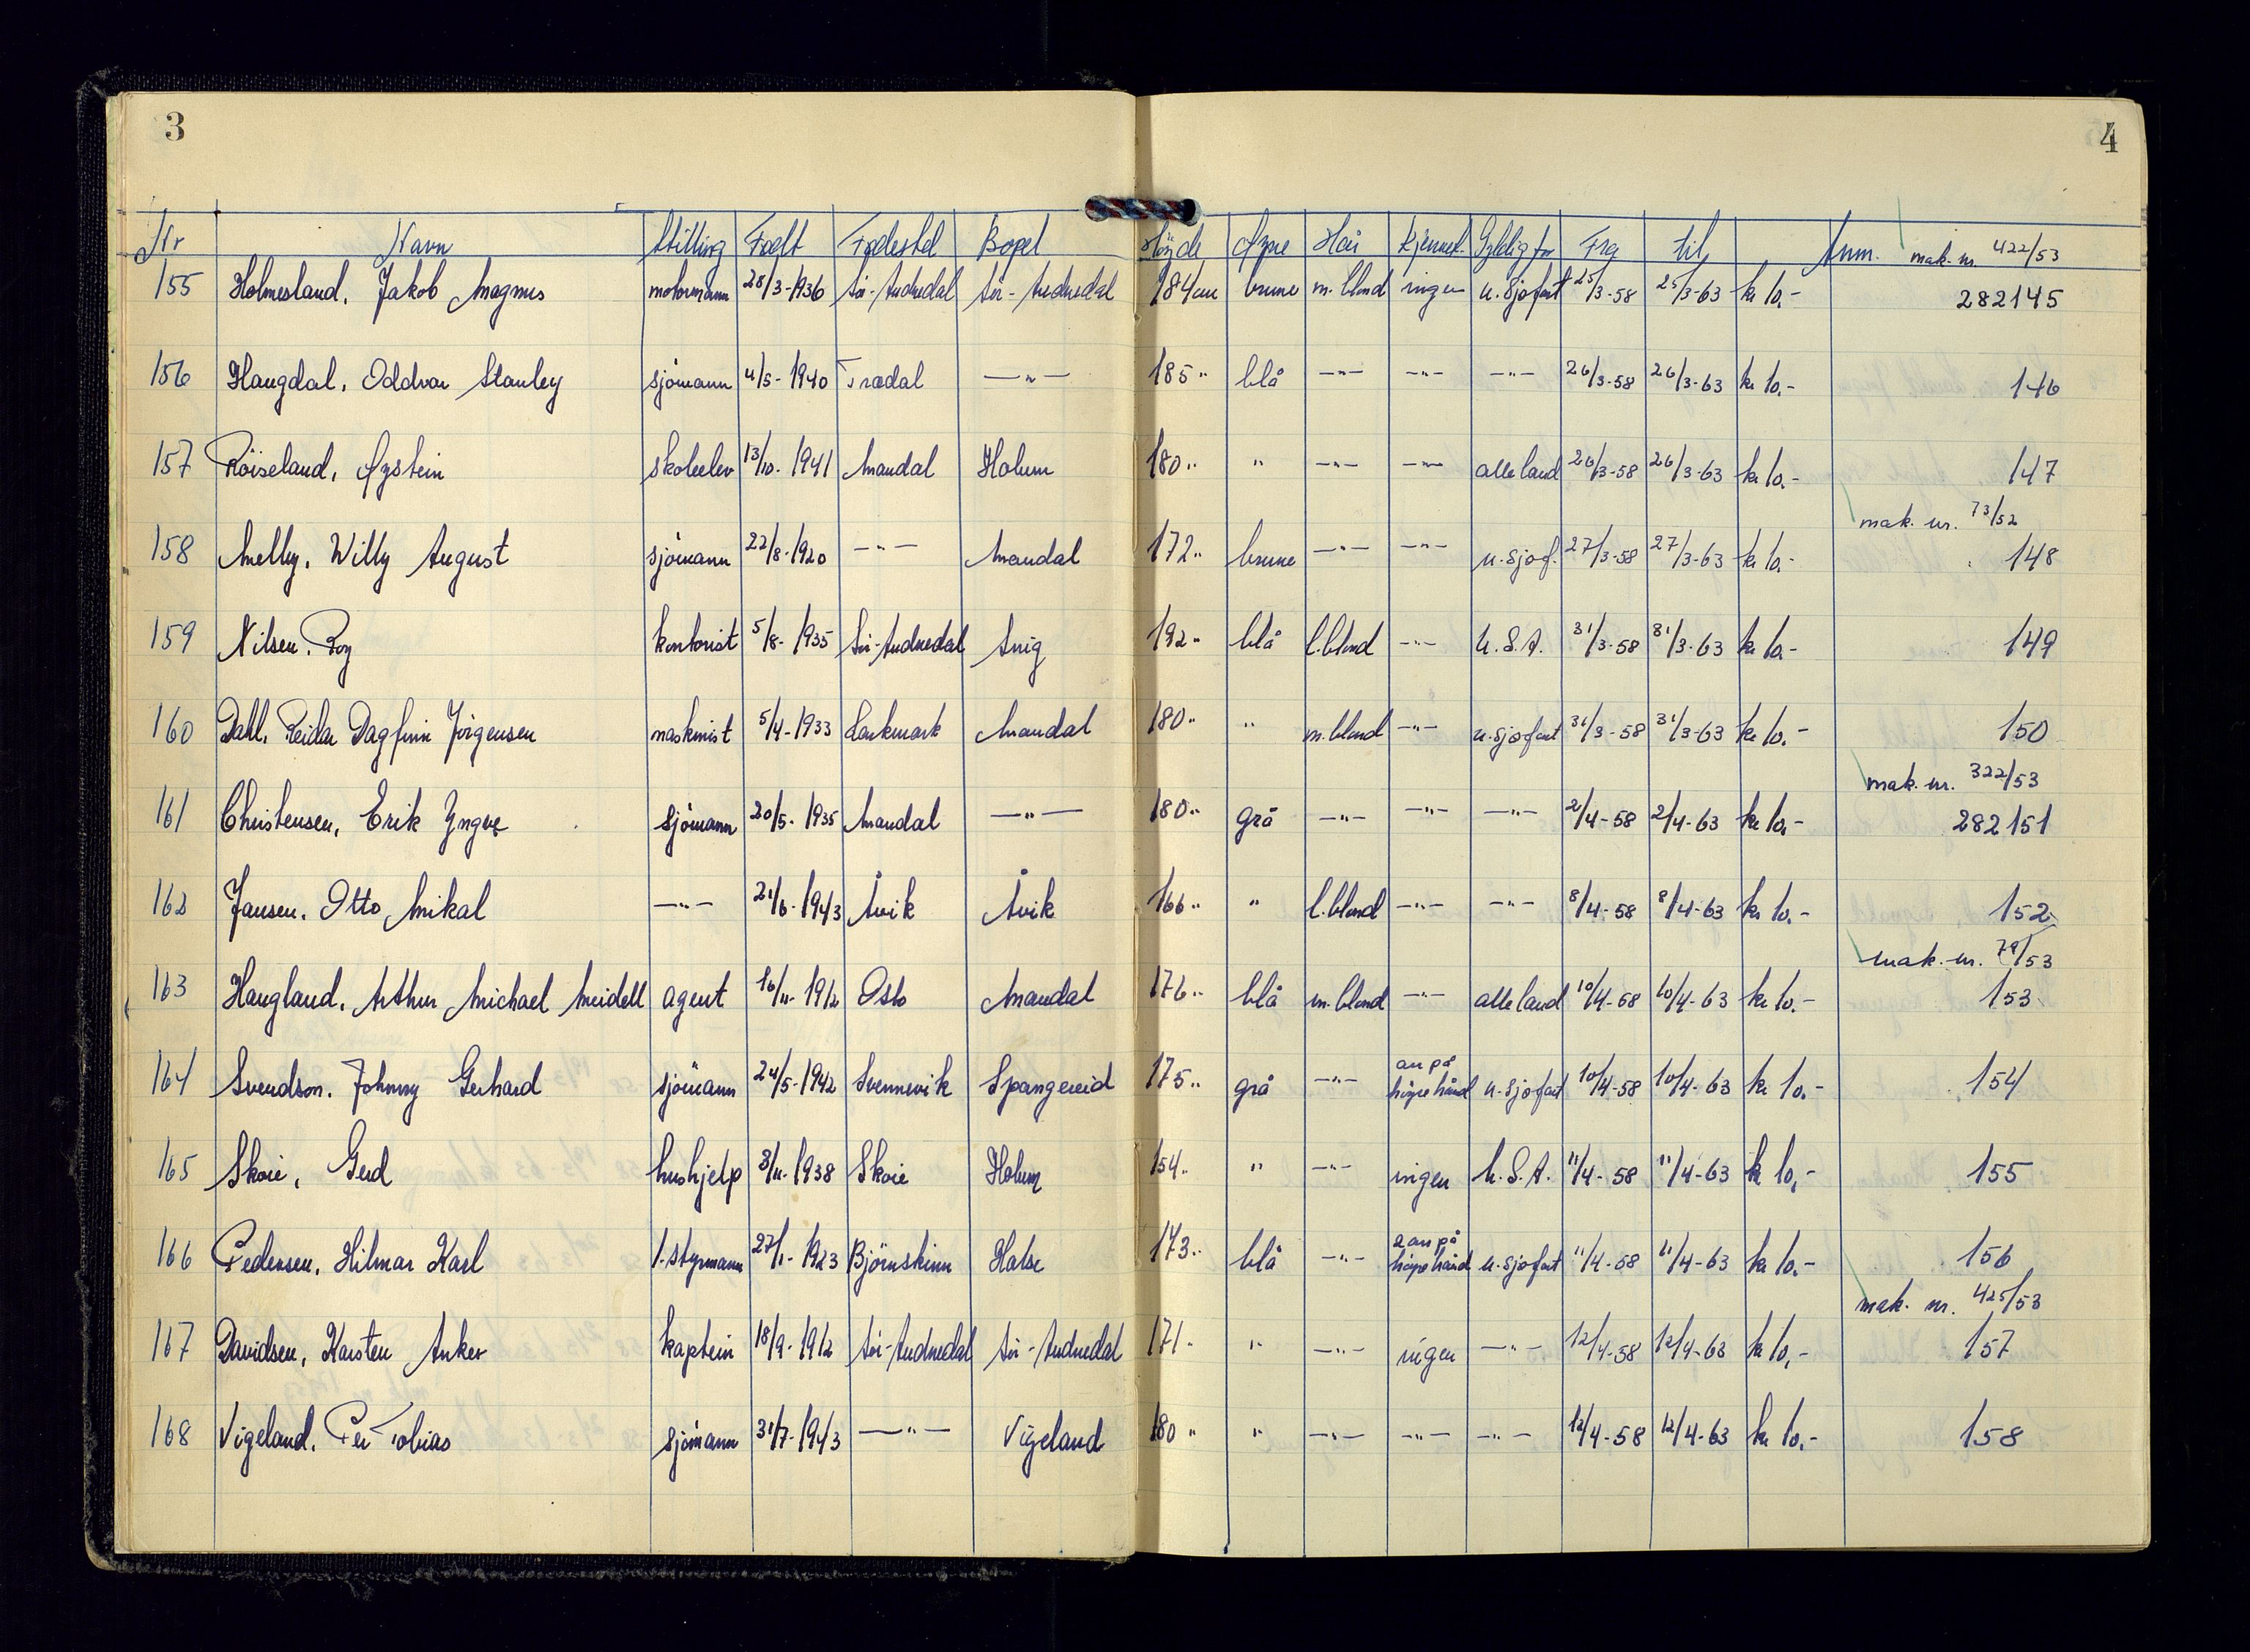 3
4
Nr Navn Stilling Født Fødestd Bopel Høyde Øyne Hår Kjennet. Gyldig for Fra til Anm. mak. nr. 422/53
155 Holmesland, Jakob Magnus motormann 28/3-1936 Sør-Audnedal Sør-Audnedal 184 cm brune m. blond ingen u. sjøfart 25/3-58 25/3-63 kr 10.- 282145
156 Haugdal, Oddvar Stanley sjömann 4/5-1940 —"— 185 " blå —"— —"— —"— 26/3-58 26/3-63 kr 10.- 146
157 Röiseland, Øystein skoleelev 13/10-1941 Mandal Holum 180 " " —"— —"— alle land 26/3-58 26/3-63 kr 10.- 147
mak. nr. 73/52
158 Melby, Willy August sjömann 22/8-1920 —"— Mandal 172 " brune —"— —"— u. sjøf. 27/3-58 27/3-63 kr 10.- 148
159 Nilsen, Roy kontorist 5/8-1935 Sør-Audnedal Snig 192 " blå l. blond —"— U.S.A. 31/3-58 31/3-63 kr 10.- 149
160 Dahl, Reidar Dagfinn Jörgensen maskinist 5/4-1933 Mandal 180 " " m. blond —"— u. sjøfart 31/3-58 31/3-63 kr 10.- 150
mak. nr. 322/53
161 Christensen, Erik Yngve sjömann 20/5-1935 Mandal —"— 180 " grå —"— —"— —"— 2/4-58 2/4-63 kr 10.- 282151
162 Jansen, Otto Mikal —"— 21/6-1943 Åvik Åvik 166 " " l. blond —"— —"— 8/4-58 8/4-63 kr 10.- 152
mak. nr. 79/53
163 Haugland, Arthur Michael Meidell agent 16/11-1912 Oslo Mandal 176 " blå m. blond —"— alle land 10/4-58 10/4-63 kr 10.- 153
164 Svendson, Johnny Gerhard sjömann 24/5-1942 Svennevik Spangereid 175 " grå —"— arr på höyre hånd u. sjøfart 10/4-58 10/4-63 kr 10.- 154
165 Skoie, Gerd hushjelp 3/11-1938 Skoie Holum 154 " " —"— ingen U.S.A. 11/4-58 11/4-63 kr 10,- 155
166 Pedersen, Hilmar Karl 1. styrmann 27/1-1923 Björnskinn Halse 173 " blå —"— 2 arr på höyre hånd u. sjøfart 11/4-58 11/4-63 kr 10.- 156
mak. nr. 425/53
167 Davidsen, Karsten Anker kaptein 18/9-1912 Sør-Audnedal Sør-Audnedal 171 " " —"— ingen —"— 12/4-58 12/4-63 kr 10,- 157
168 Vigeland, Per Tobias sjömann 31/7-1943 —"— Vigeland 180 " " —"— —"— —"— 12/4-58 12/4-63 kr 10.- 158